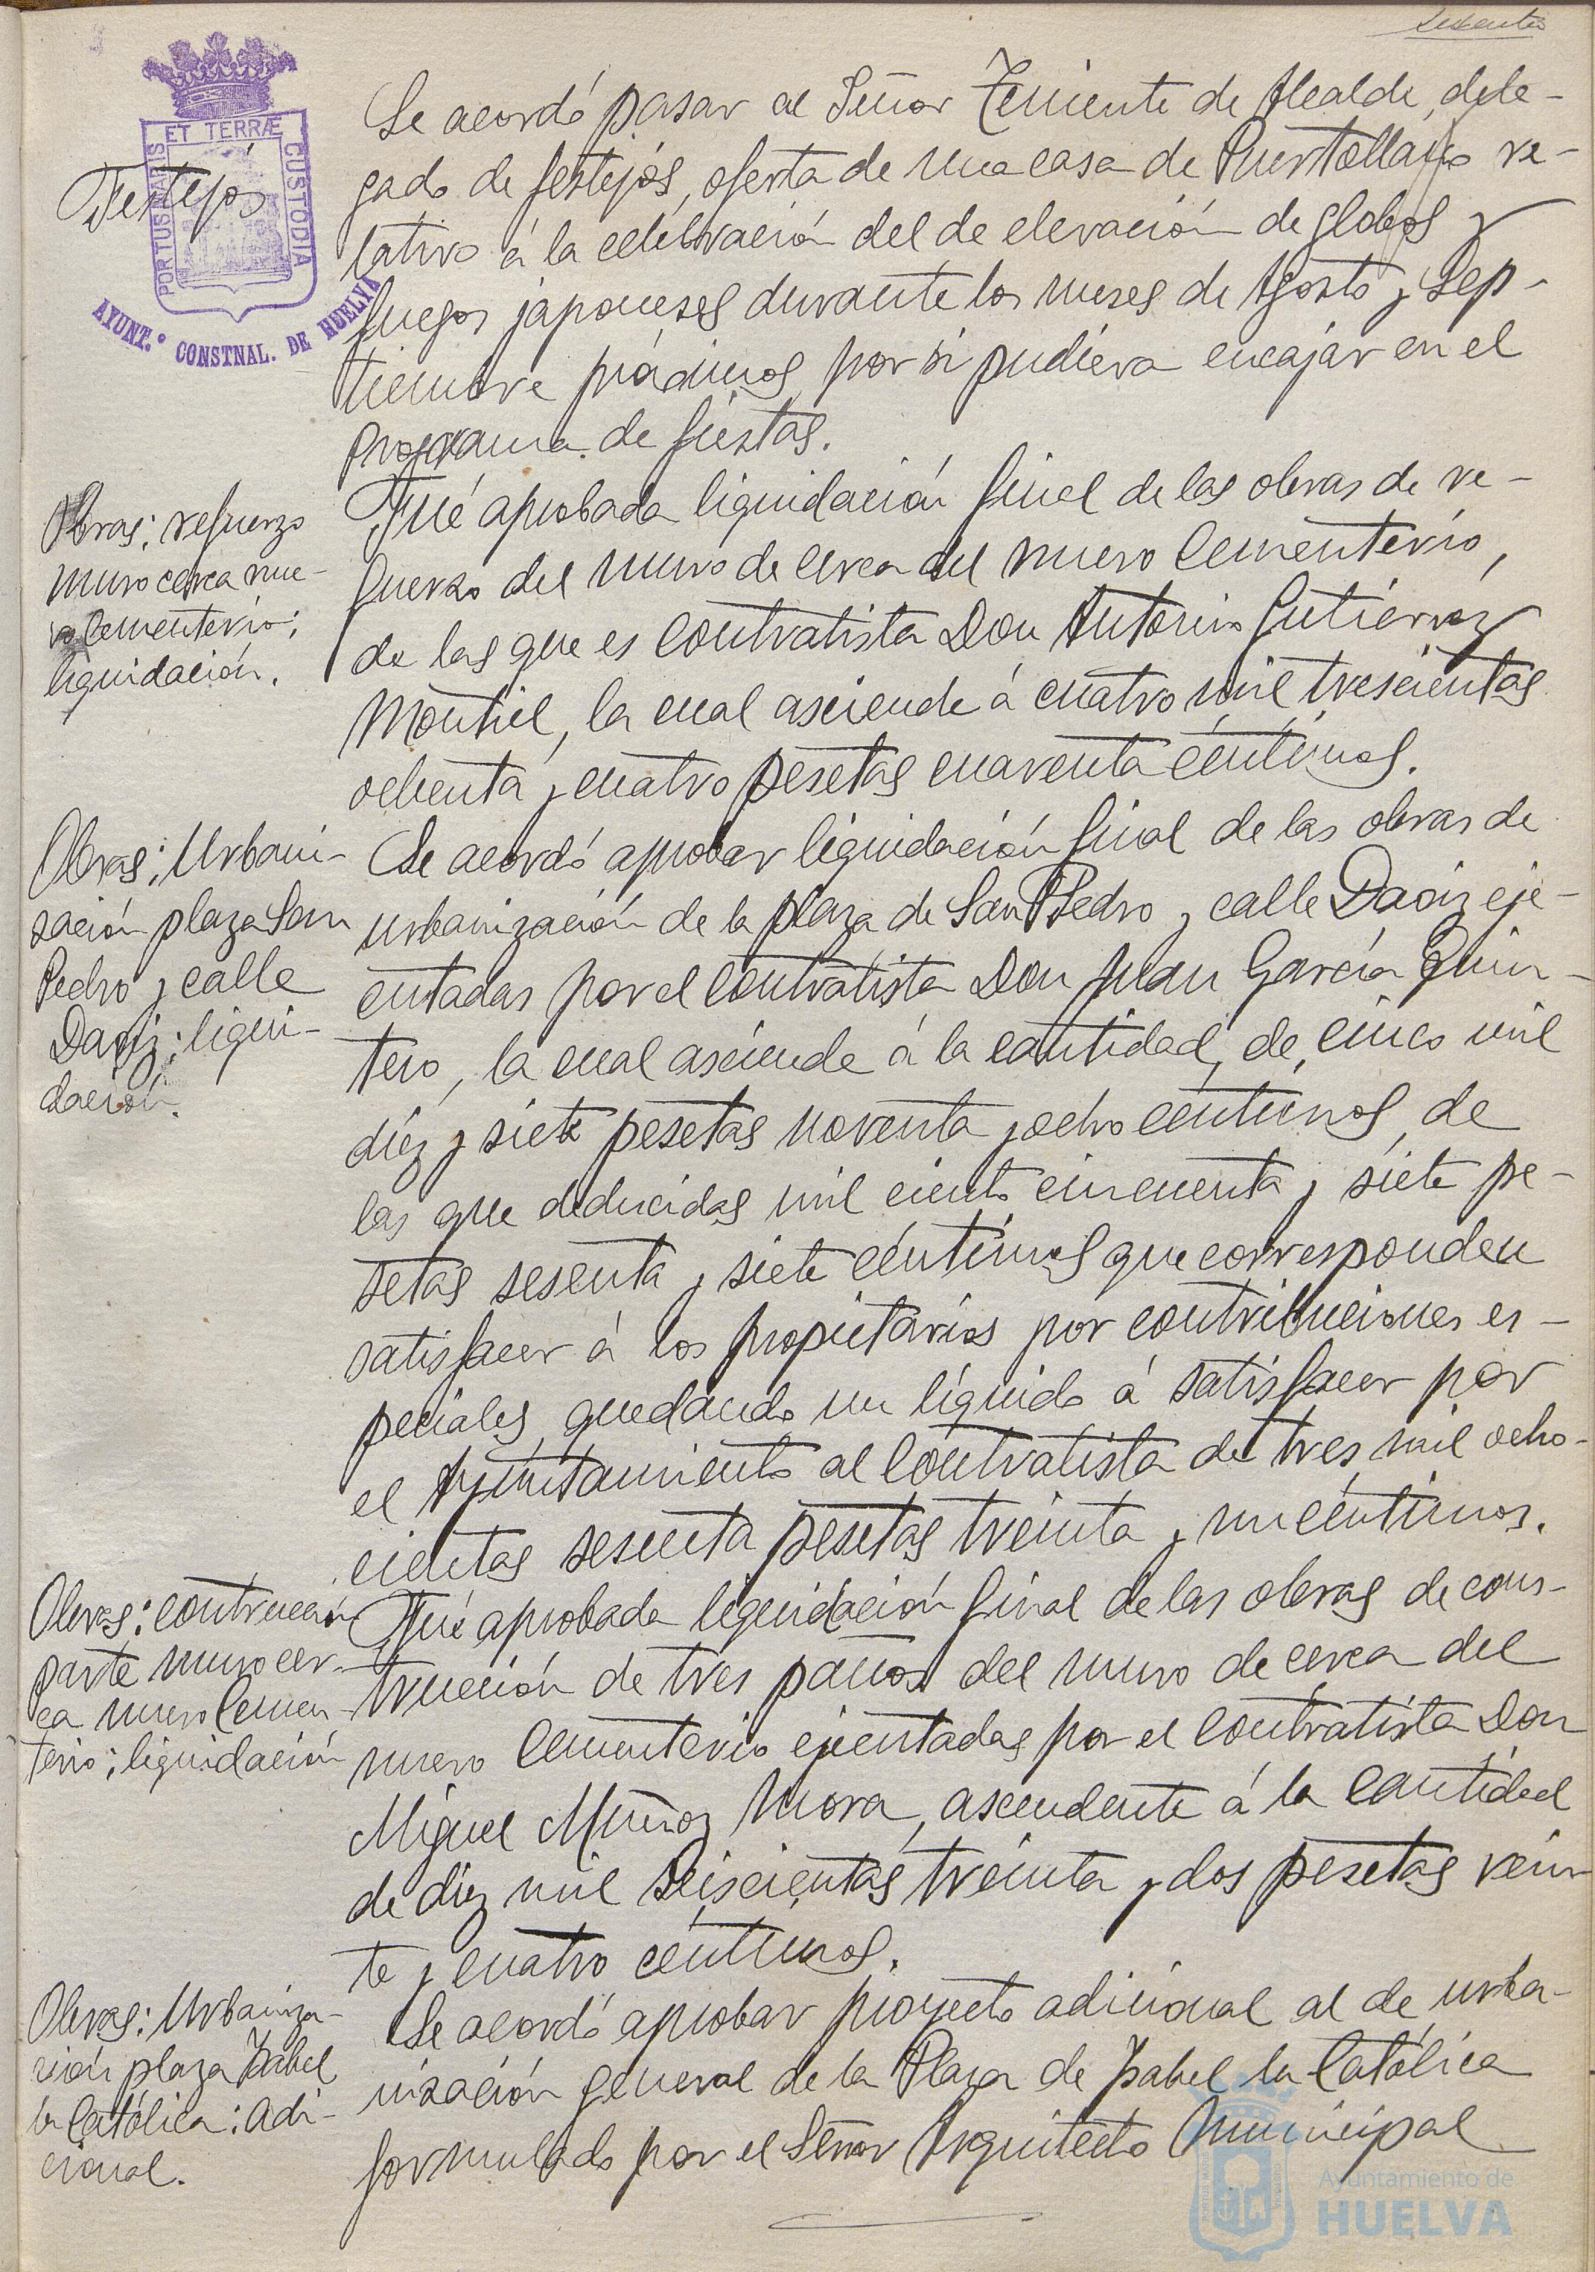 sesenta
PORTUS MARIS ET TERRÆ CUSTODIA
AYUNT.º CONSTNAL. DE HUELVA
Festejos
Se acordó pasar al Señor Teniente de Alcalde, dele-
gado de festejos, oferta de una casa de Puertollano re-
lativo á la celebración del de elevación de globos y
fuegos japoneses durante los meses de Agosto y Sep-
tiembre próximos por si pudiera encajar en el
programa de fiestas.
Obras; refuerzo
muro cerca nue-
vo Cementerio;
liquidación.
Fué aprobada liquidación final de las obras de re-
fuerzo del muro de cerca del nuevo Cementerio,
de las que es contratista Don Antonio Gutiérrez
Montiel, la cual asciende á cuatro mil trescientas
ochenta y cuatro pesetas cuarenta céntimos.
Obras; Urbani-
zación plaza San
Pedro y calle
Daoiz; liqui-
dación.
Se acordó aprobar liquidación final de las obras de
urbanización de la plaza de San Pedro y calle Daoiz eje-
cutadas por el contratista Don Juan García Quin-
tero, la cual asciende á la cantidad de cinco mil
diez y siete pesetas noventa y ocho céntimos, de
las que deducidas mil ciento cincuenta y siete pe-
setas sesenta y siete céntimos que corresponden
satisfacer á los propietarios por contribuciones es-
peciales, quedando un líquido á satisfacer por
el Ayuntamiento al contratista de tres mil ocho-
cientas sesenta pesetas treinta y un céntimos.
Obras; contrucción
parte muro cer-
ca nuevo Cemen-
terio; liquidación
Fué aprobada liquidación final de las obras de cons-
trucción de tres paños del muro de cerca del
nuevo Cementerio ejecutadas por el contratista Don
Miguel Muñoz Mora, ascendente á la cantidad
de diez mil seiscientas treinta y dos pesetas vein-
te y cuatro céntimos.
Obras; Urbaniza-
ción plaza Isabel
la Católica; adi-
cional.
Se acordó aprobar proyecto adicional al de urba-
nización general de la Plaza de Isabel la Católica
formulado por el Señor Arquitecto Municipal
Ayuntamiento de
HUELVA